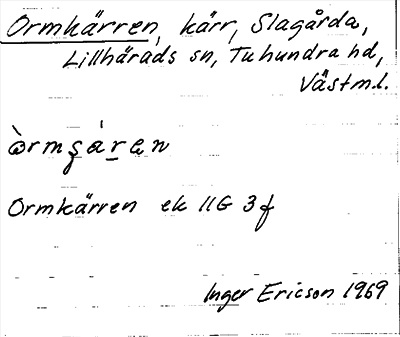 Ormkärren, kärr, Slagårda,
Lillhärads sn, Tuhundra hd,
Västml.
Ormkärren ek 11G 3f
Inger Ericson 1969